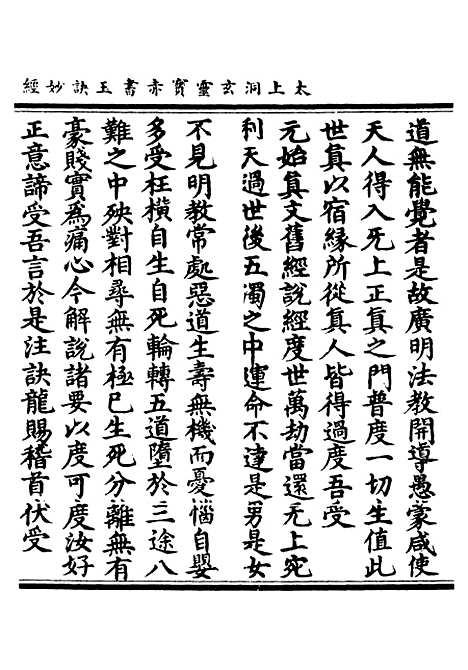 太上洞玄靈寶赤書玉訣妙經
道無能覺者是故廣明法教開導愚蒙咸使
天人得入无上正真之門普度一切生值此
世真以宿緣所從真人皆得過度吾受
元始真文舊經說經度世萬劫當還无上宛
利天過世後五濁之中運命不達是男是女
不見明教常處惡道生壽無機而憂惱自嬰
多受枉橫自生自死輪轉五道墮於三途八
難之中殃對相尋無有極已生死分離無有
豪賤實為痛心今解說諸要以度可度汝好
正意諦受吾言於是注訣龍賜稽首伏受